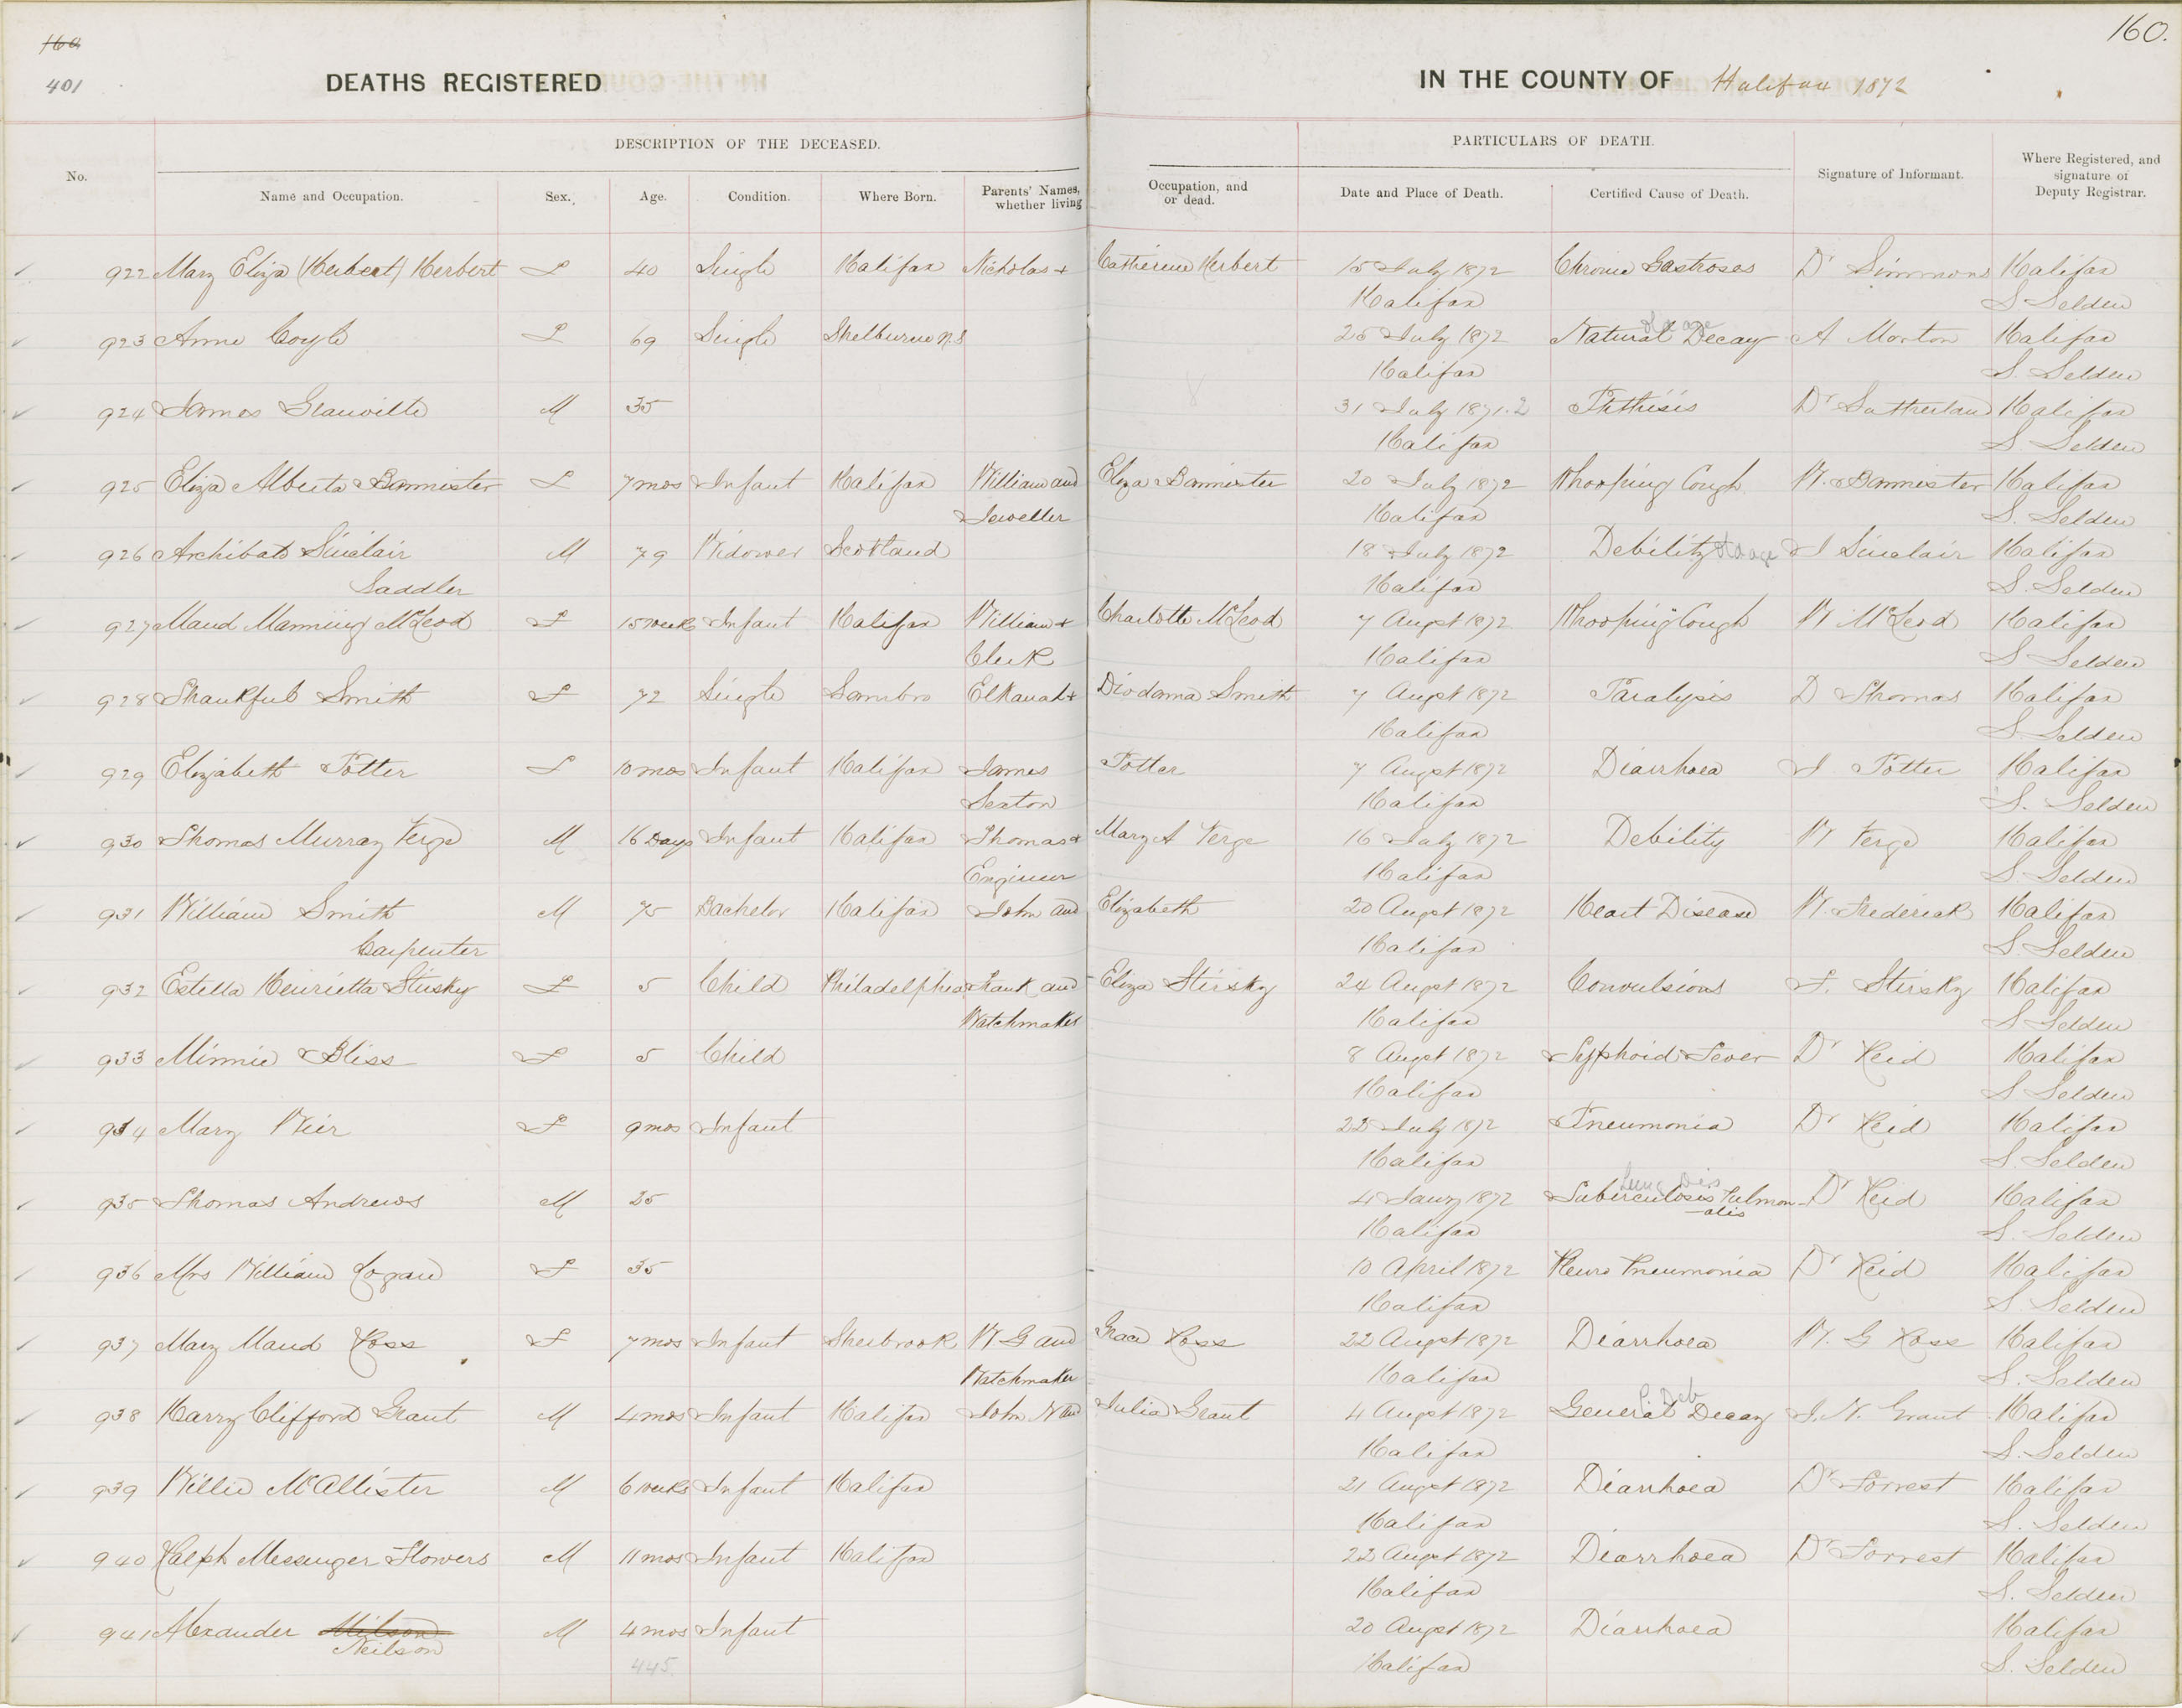 160
401
160.
DEATHS REGISTERED
IN THE COUNTY OF Halifax 1872
DESCRIPTION OF THE DECEASED.
PARTICULARS OF DEATH.
No.
Name and Occupation.
Sex.
Age.
Condition.
Where Born.
Parents' Names, whether living
Occupation, and or dead.
Date and Place of Death.
Certified Cause of Death.
Signature of Informant.
Where Registered, and signature of Deputy Registrar.
922 Mary Eliza (Herbert) Herbert F 40 Single Halifax Nicholas + Catherine Herbert 15 July 1872 Chronic Gastroses Dr Simmons Halifax
Halifax S Selden
923 Anne Coyle F 69 Single Shelburne N.S 25 July 1872 Natural Decay A Morton Halifax
Halifax S. Selden
924 James Glanville M 35 31 July 1871.2 Phthisis Dr Sutherland Halifax
Halifax S Selden
925 Eliza Alberta Bannister F 7 mos Infant Halifax William and Eliza Bannister 20 July 1872 Whooping Cough W. Bannister Halifax
Jeweller Halifax S. Selden
926 Archibald Sinclair M 79 Widower Scotland 18 July 1872 Debility Old age J Sinclair Halifax
Saddler Halifax S. Selden
927 Maud Manning McLeod F 15 weeks Infant Halifax William + Charlotte McLeod 7 Augst 1872 Whooping Cough W McLeod Halifax
Clerk Halifax S Selden
928 Thankful Smith F 72 Single Sambro Elkanah + Diodama Smith 7 Augst 1872 Paralysis D Thomas Halifax
Halifax S. Selden
929 Elizabeth Potter F 10 mos Infant Halifax James Potter 7 Augst 1872 Diarrhoea J Potter Halifax
Sexton Halifax S. Selden
930 Thomas Murray Verge M 16 Days Infant Halifax Thomas + Mary A Verge 16 July 1872 Debility W Verge Halifax
Engineer Halifax S. Selden
931 William Smith M 75 Bachelor Halifax John and Elizabeth 20 Augst 1872 Heart Disease W. Frederick Halifax
Carpenter Halifax S. Selden
932 Estella Henrietta Stirsky F 5 Child Philadelphia Frank and Eliza Stirsky 24 Augst 1872 Convulsions F. Stirsky Halifax
Watchmaker Halifax S Selden
933 Minnie Bliss F 5 Child 8 Augst 1872 Typhoid Fever Dr Reid Halifax
Halifax S Selden
934 Mary Weir F 9 mos Infant 22 July 1872 Pneumonia Dr Reid Halifax
Halifax S. Selden
Lung Dis
935 Thomas Andrews M 25 4 Jany 1872 Tuberculosis Pulmon- Dr Reid Halifax
-alis
Halifax S. Selden
936 Mrs William Logan F 35 10 April 1872 Pleuro Pneumonia Dr Reid Halifax
Halifax S Selden
937 Mary Maud Ross F 7 mos Infant Sherbrook W G and Grace Ross 22 Augst 1872 Diarrhoea W. G Ross Halifax
Watchmaker Halifax S. Selden
938 Harry Clifford Grant M 4 mos Infant Halifax John N and Julia Grant 4 Augst 1872 General Decay J. N. Grant Halifax
Halifax S. Selden
939 Willie McAllister M 6 weeks Infant Halifax 21 Augst 1872 Diarrhoea Dr Forrest Halifax
Halifax S. Selden
940 Ralph Messenger Flowers M 11 mos Infant Halifax 22 Augst 1872 Diarrhoea Dr Forrest Halifax
Halifax S. Selden
941 Alexander Milson M 4 mos Infant 20 Augst 1872 Diarrhoea Halifax
Neilson
445. Halifax S. Selden